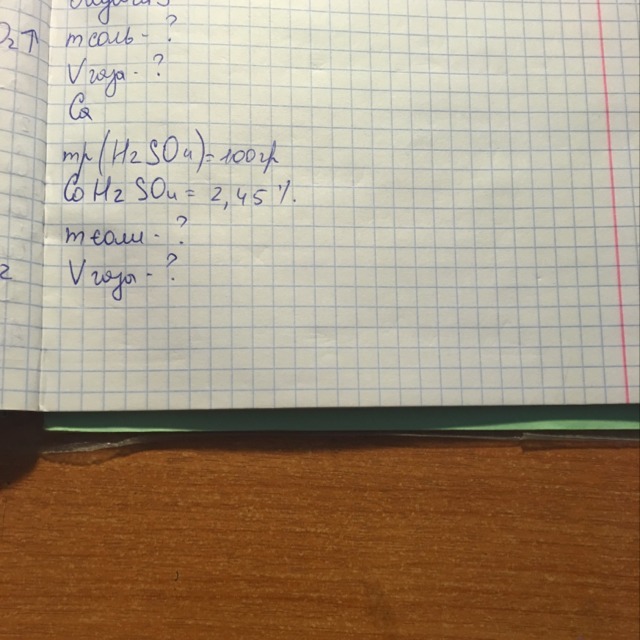 O₂↑ m соль - ?
V газа - ?
Ca
mр(H₂SO₄) = 100гр
ω H₂SO₄ = 2,45 %.
m соли - ?
2 V газа - ?